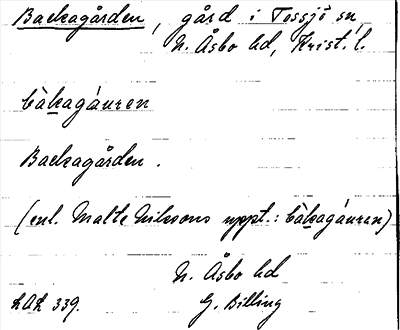 Backagården, gård i Tossjö sn,
N. Åsbo hd, Krist. l.
bàkagáuren
Backagården.
(enl. Malte Nilssons uppt.: bàkagáuren)
N. Åsbo hd
LAL 339. G. Billing